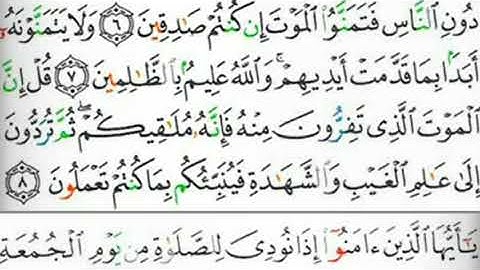 دُونِ ٱلنَّاسِ فَتَمَنَّوُا۟ ٱلْمَوْتَ إِن كُنتُمْ صَـٰدِقِينَ ٦ وَلَا يَتَمَنَّوْنَهُۥٓ
أَبَدًۢا بِمَا قَدَّمَتْ أَيْدِيهِمْ ۚ وَٱللَّهُ عَلِيمٌۢ بِٱلظَّـٰلِمِينَ ٧ قُلْ إِنَّ
ٱلْمَوْتَ ٱلَّذِى تَفِرُّونَ مِنْهُ فَإِنَّهُۥ مُلَـٰقِيكُمْ ۖ ثُمَّ تُرَدُّونَ
إِلَىٰ عَـٰلِمِ ٱلْغَيْبِ وَٱلشَّهَـٰدَةِ فَيُنَبِّئُكُم بِمَا كُنتُمْ تَعْمَلُونَ ٨
يَـٰٓأَيُّهَا ٱلَّذِينَ ءَامَنُوٓا۟ إِذَا نُودِىَ لِلصَّلَوٰةِ مِن يَوْمِ ٱلْجُمُعَةِ